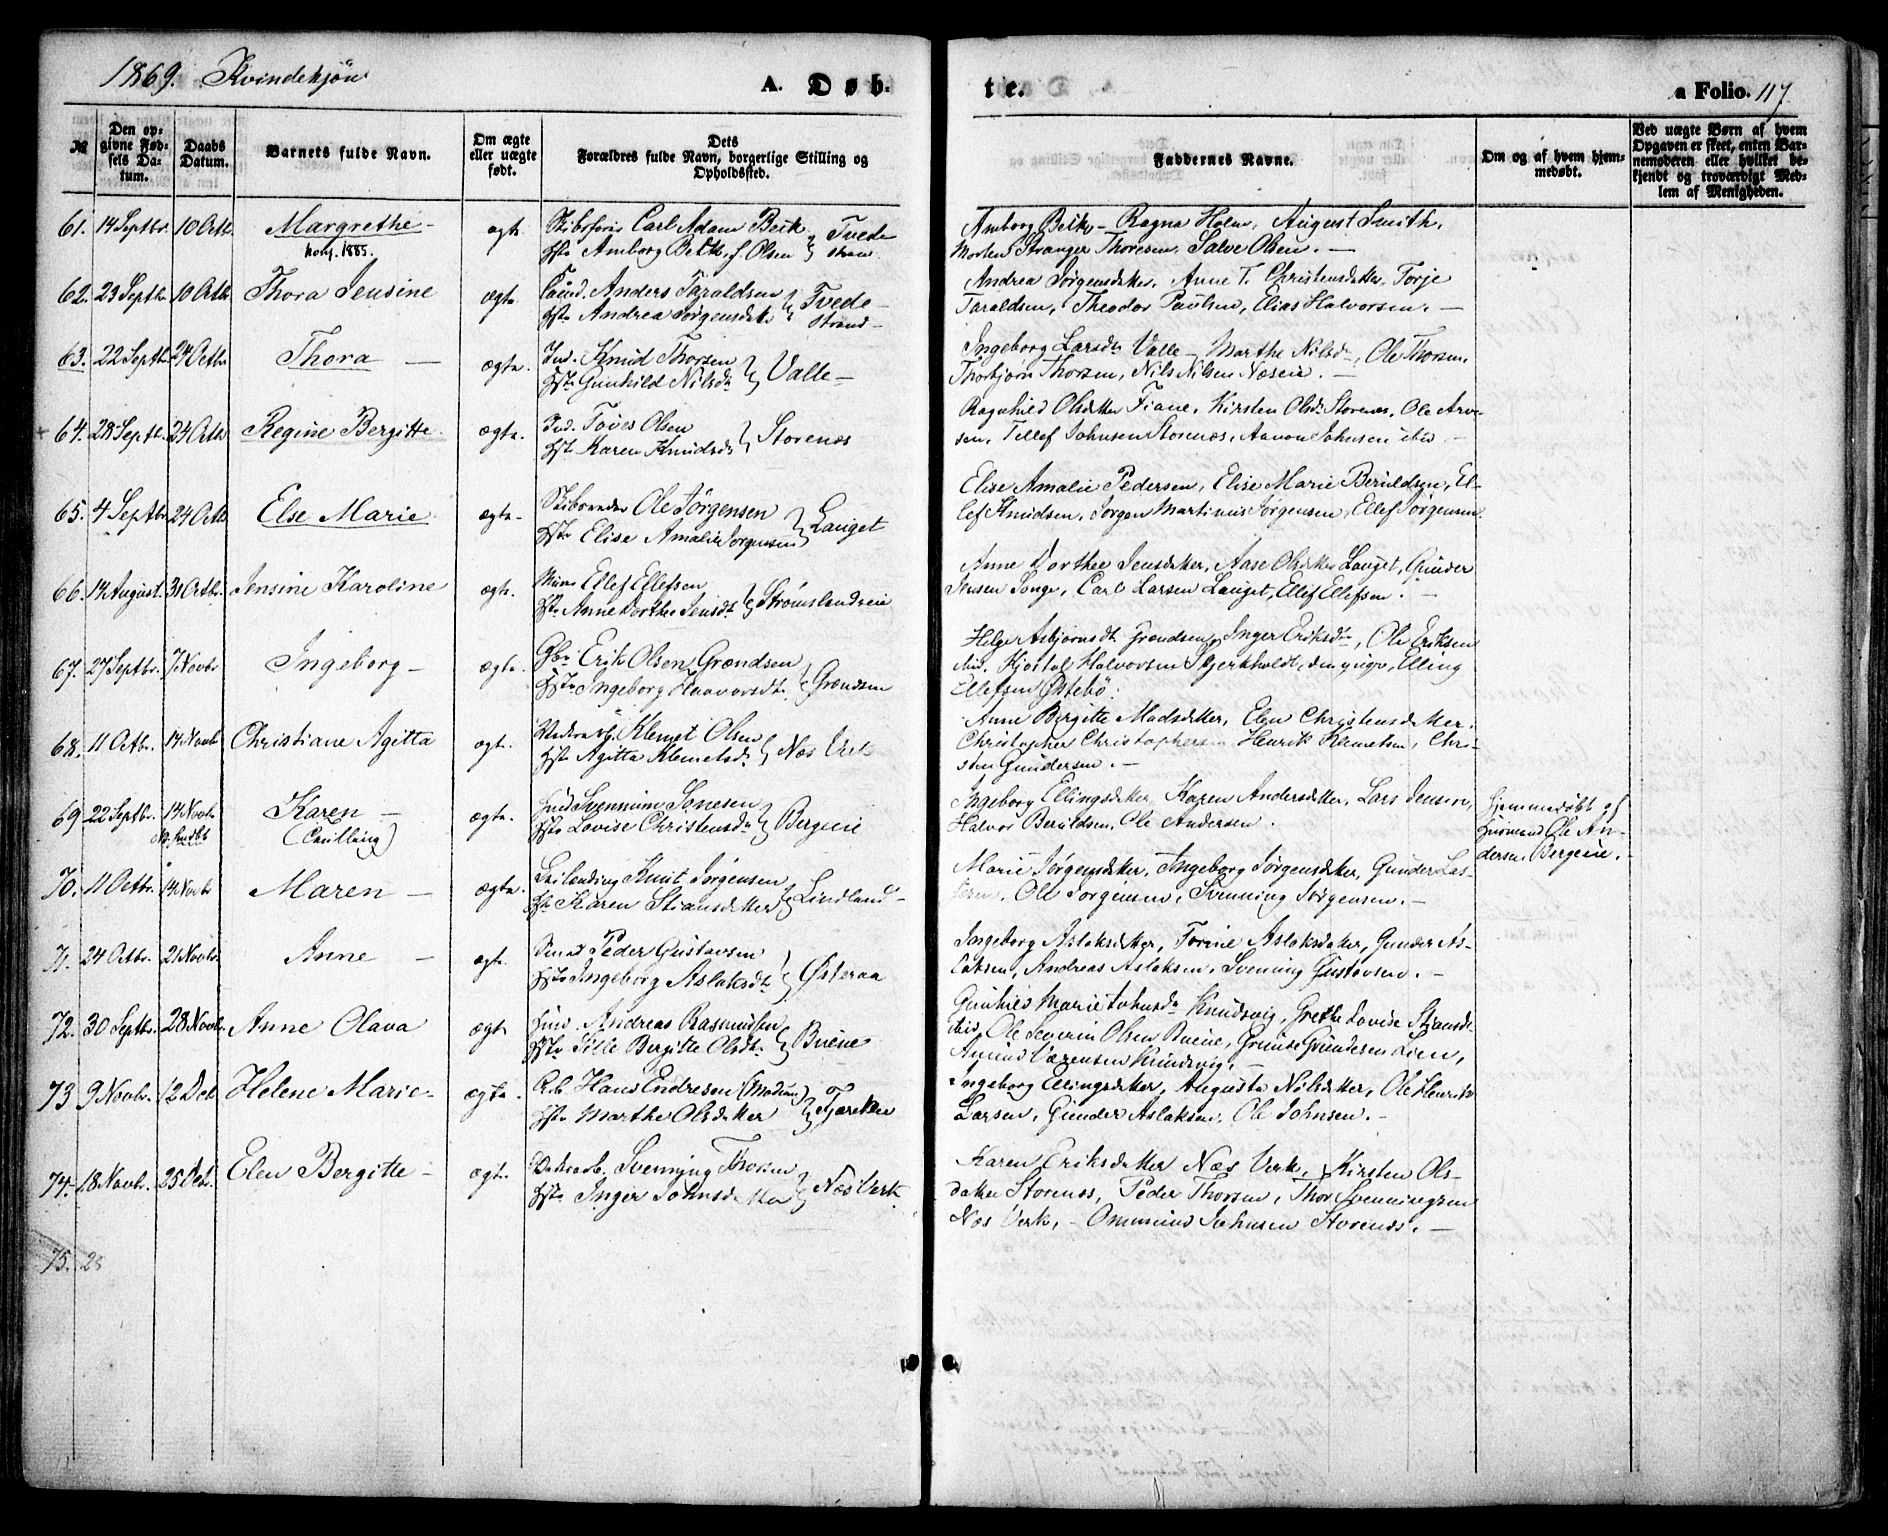 1869. Kvindekjøn
A. Døb-
te.
a Folio. 117
№
Den op-
givne Fød-
sels Da-
tum.
Daabs
Datum.
Barnets fulde Navn.
Om ægte
eller uægte
født.
Dets
Forældres fulde Navn, borgerlige Stilling og
Opholdssted.
Faddernes Navne.
Om og af hvem hjem-
medøbt.
Ved uægte Børn af hvem
Opgaven er skeet, enten Bar-
nemoderen eller hvilket be-
kjendt og troværdigt Med-
lem af Menigheden.
61. 14 Septbr. 10 Octb. Margrethe - ægte Carl Adam Beck Tvede
1885. Amborg Beck, f. Olsen strand
Amborg Beck - Ragna Holm, August Smith,
Morten Stranger Thoresen, Salve Olsen. -
62. 23 Septbr. 10 Octb. Thora Jensine ægte Anders Taraldsen Tvede-
Andrea Jørgensdtr. strand -
Andrea Jørgensdatter, Anne T. Christensdatter, Torje
Taraldsen, Theodor Paulsen, Elias Halvorsen. -
63. 22 Septbr. 24 Octbr. Thora - ægte. Ind. Knud Thorsen
Hst. Gunhild Nilsdr Valle -
Ingeborg Larsdr Valle - Marthe Nilsdr, Ole Thorsen,
Thorbjørn Thorsen, Nils Nilsen Næseie. -
64. 28 Septb. 24 Octb. Regine Bergitte ægte. Ind. Toves Olsen
Hst. Karen Knudsdr Storenæs
Ragnhild Olsdatter Fiane, Kirsten Olsdr Storenæs, Ole Arve-
sen, Tellef Johnsen Storenæs, Aanon Johnsen ibid -
65. 4 Septbr. 24 Octb. Else Marie ægte - Ole Jørgensen
Hst. Elise Amalie Jørgensen Lauget
Elise Amalie Pedersen, Elise Marie Beruldsen, El-
lef Knudsen, Jørgen Martinus Jørgensen, Ellef Jørgensen.
66. 14 August. 31 Octbr. Jensine Karoline ægte. Ellef Ellefsen
Hst. Anne Dorthe Jensdt. Strømslandseie
Anne Dorthee Jensdatter, Aase Olsdatter Lauget, Gunder
Jensen Songe, Carl Larsen Lauget, Ellef Ellefsen. -
67. 27 Septbr. 7 Novbr Ingeborg - ægte. Gbr. Erik Olsen Grændsen
Hst. Ingeborg Haavorsdt. Grændsen
Helge Asbjørnsdt Grændsen, Inger Eriksdtr, Ole Eriksen
ibid. Kjøstol Halvorsen Skjerkholdt, den yngre, Elling
Ellefsen Østebø.
68. 11 Octbr. 14 Novb Christiane Agitta ægt. Klemet Olsen
Hst. Agitta Klemetsdr Næs Verk
Anne Bergitte Madsdatter, Elen Christensdatter,
Christopher Christophersen Henrik Klemetsen, Chri-
sten Gundersen. -
69 22 Septbr. 14 Novbr Karen - ægte. Svennum Jensen
(Tvilling) Hst. Lovise Christensdr Bergeeie
Ingeborg Ellingsdatter, Karen Andersdatter, Lars Jensen,
Halvor Beruldsen, Ole Andersen.
Hjemmedøbt af
Husmand Ole An-
dersen Bergeeie. -
70. 11 Octbr. 14 Novbr Maren - ægte. Leilænding Knut Jørgensen
Hst. Karen Stiansdatter Lindland -
Marie Jørgensdatter, Ingeborg Jørgensdatter, Gunder Las-
Ole Jørgensen, Svenning Jørgensen. -
71. 24 Octbr. 21 Novbr. Anne - ægt. Peder Gustavsen
Hst. Ingeborg Aslaksdt. Østeraa
Ingeborg Aslaksdatter, Torine Aslaksdatter, Gunder As-
laksen, Andreas Aslaksen, Svening Gustavsen. -
72. 30 Septbr. 28 Novbr. Anne Olava ægt. Andreas Rasmusen
Hst. Sille Bergitte Olsdt. Bueie
Gunhild Marie Johnsdr Knudsvig, Grethe Lovise Stiansdr
ibid, Ole Severin Olsen Bueie, Gunder Lien,
Amund Knudsvig. -
73 9 Novbr. 12 Dcb Helene Marie - ægte. Hans Endresen (Modum)
Hst. Marthe Olsdatter Tjærekleiv
Ingeborg Ellingsdatter, Augusta Nilsdatter, Ole Henrik
Larsen, Gunder Aslaksen, Ole Johnsen. -
74. 18 Novbr. 25 Dcb. Elen Bergitte - ægt. Svenning Thorsen
Hst. Inger Johnsdatter Næs Verk
Karen Eriksdatter Næs Verk, Kirsten Ols-
datter Storenæs, Peder Thorsen, Thor Svenningsen
Næs Verk, - Ommund Johnsen Storenæs. -
75. 28